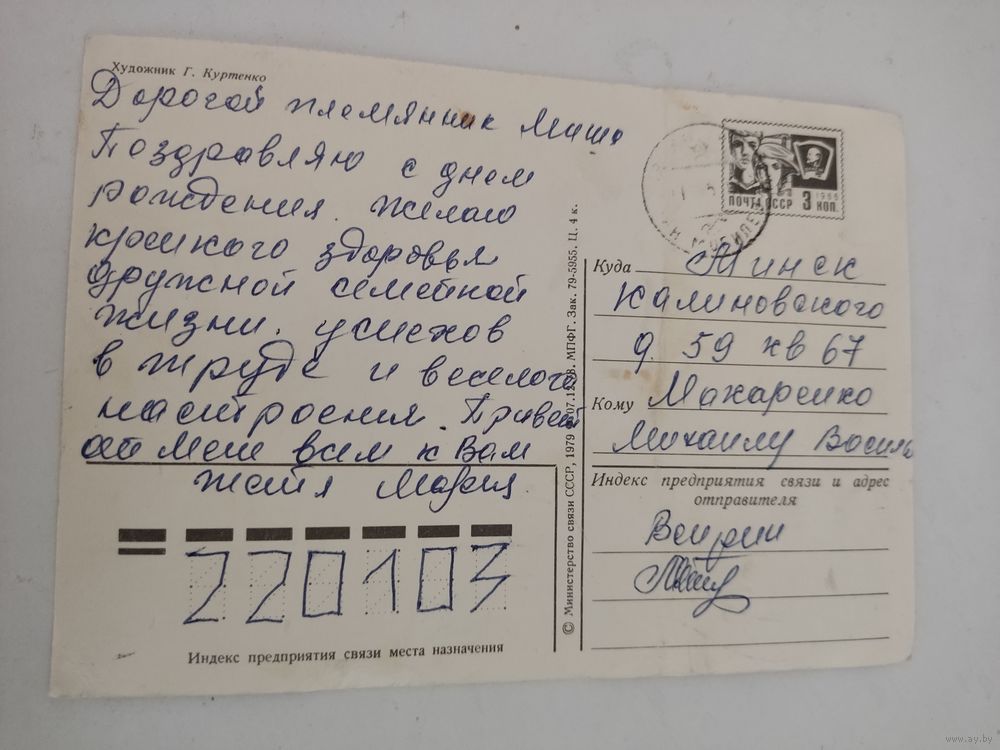 Художник Г. Куртенко
Дорогой племянник Миша
Поздравляю с днем
рождения. желаю
крепкого здоровья
дружной семейной
жизни. успехов
в труде и веселого
настроения. Привет
от меня всем к Вам
тетя Мария
220103
Индекс предприятия связи места назначения
© Министерство связи СССР, 1979 МПФГ. Зак. 79-5955. Ц. 4 к.
ПОЧТА СССР 3 КОП.
1966
Куда Минск
Калиновского
д. 59 кв 67
Кому Макаренко
Михаилу Василь
Индекс предприятия связи и адрес
отправителя
www.ay.by